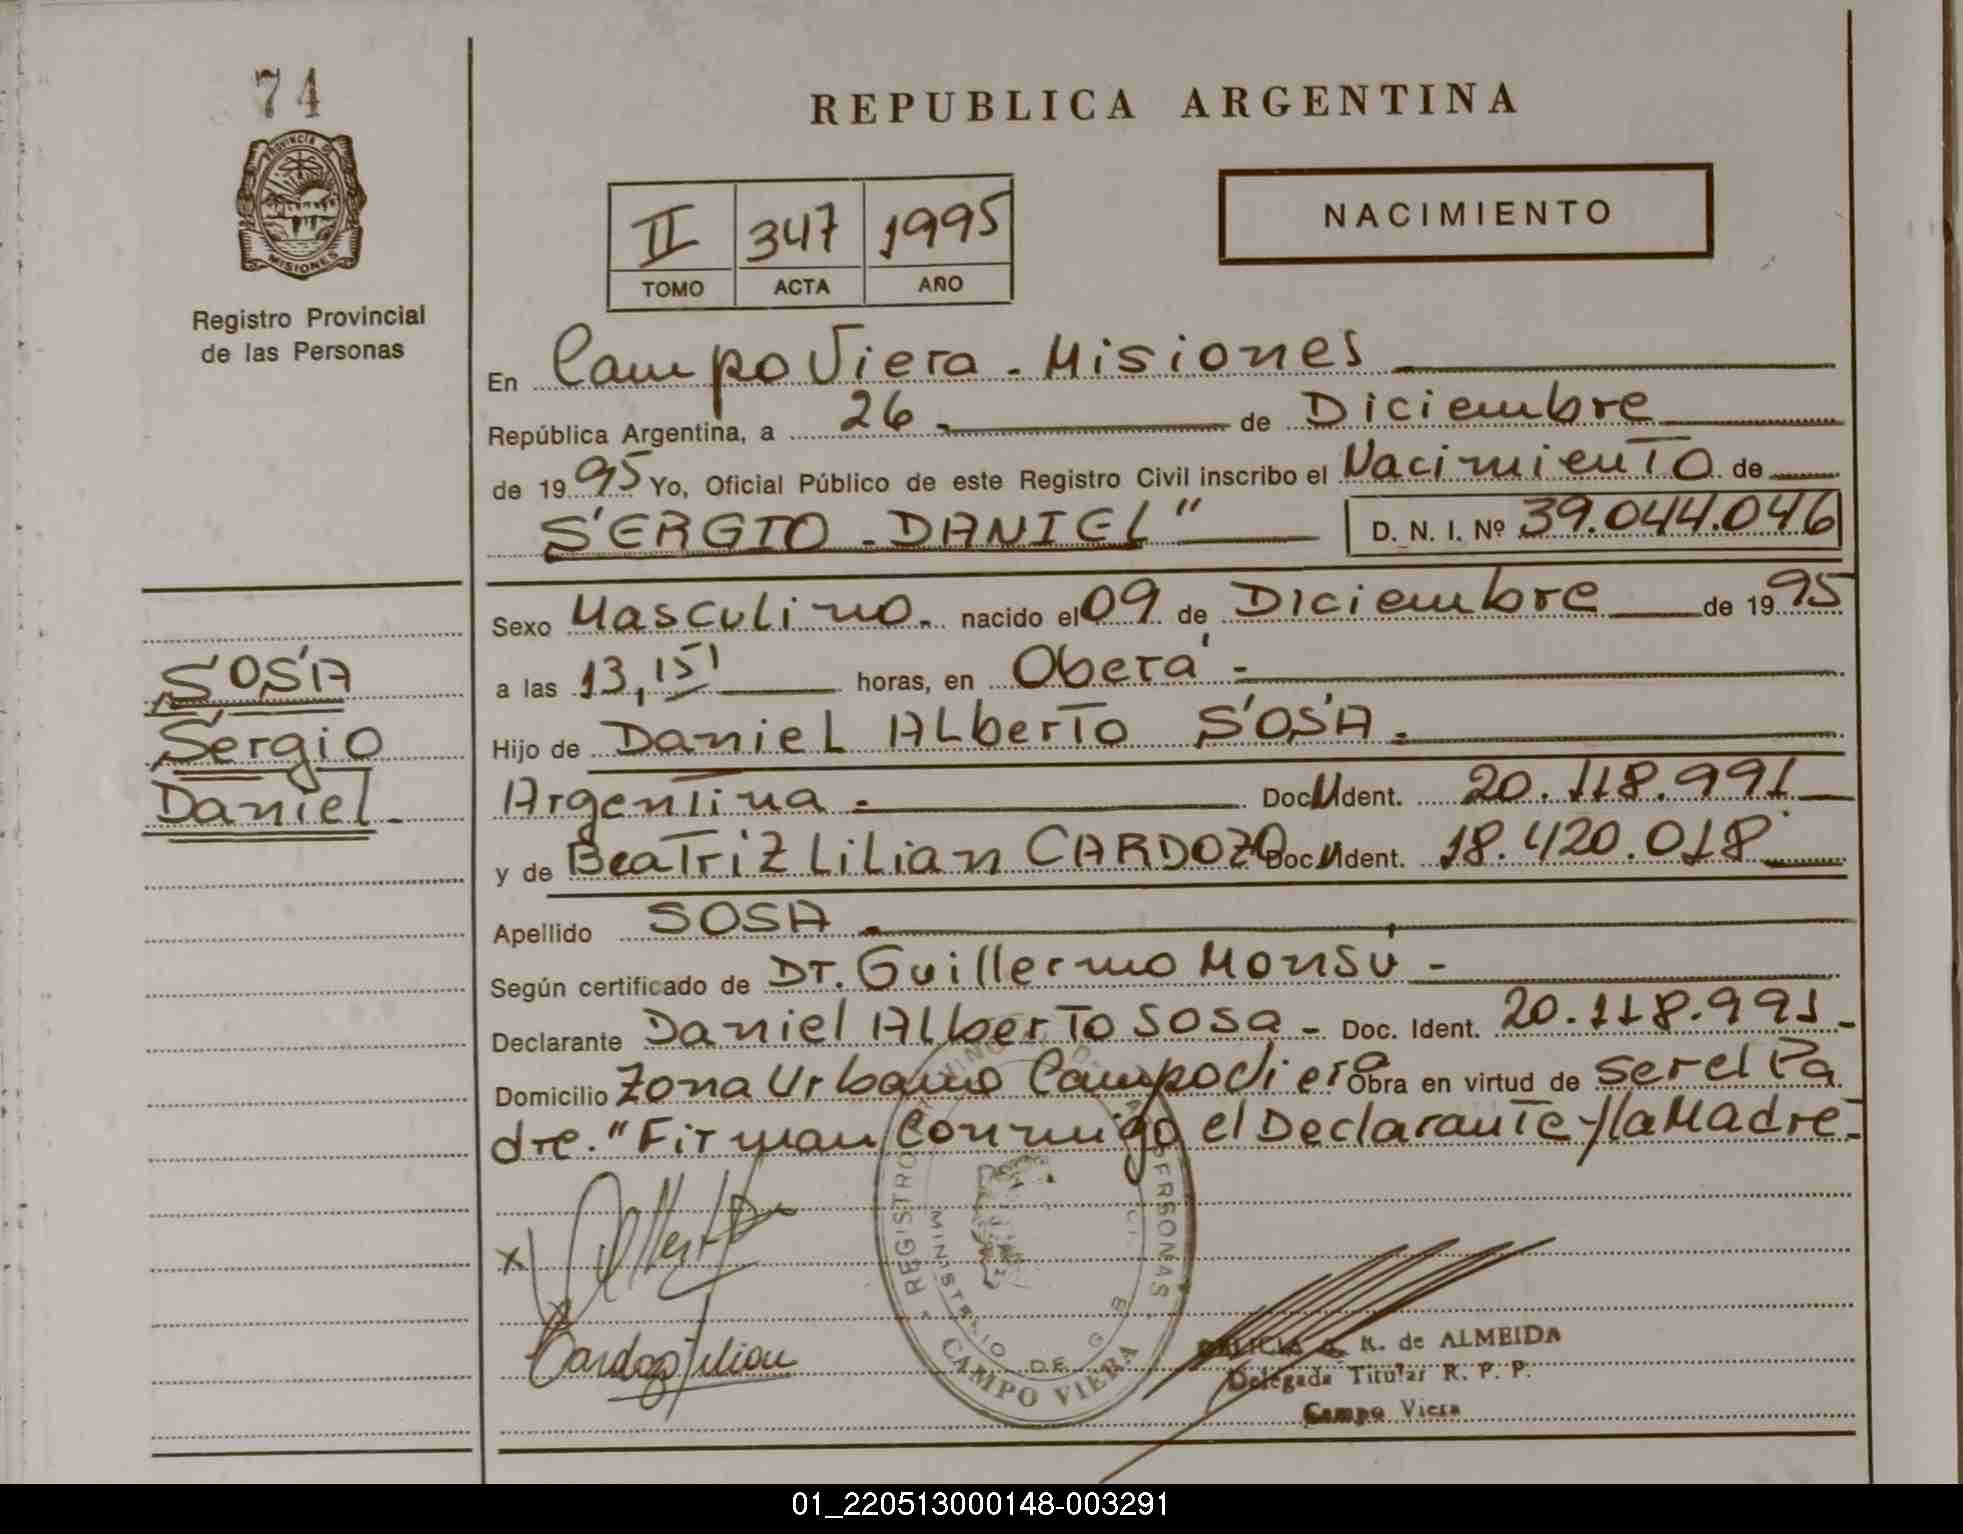 74
REPUBLICA ARGENTINA
PROVINCIA D
MISIONES
Registro Provincial
de las Personas
II 347 1995
TOMO ACTA AÑO
NACIMIENTO
En Campo Viera - Misiones
República Argentina, a 26 - de Diciembre
de 1995 Yo, Oficial Público de este Registro Civil inscribo el Nacimiento de
SERGIO - DANIEL" D. N. I. Nº 39.044.046
Sexo Masculino. nacido el 09 de Diciembre de 1995
a las 13,15' horas, en Oberá -
Hijo de Daniel Alberto SOSA -
Argentina - Doc U Ident. 20.118.991
y de Beatriz Lilian CARDOZO Doc U Ident. 18.420.018
Apellido SOSA -
Según certificado de Dr. Guillermo Monsú -
Declarante Daniel Alberto Sosa - Doc. Ident. 20.118.991 -
Domicilio Zona Urbano Campo Viera Obra en virtud de ser el Pa
dre." Firman Conmigo el Declarante y la Madre -
SOSA
Sergio
Daniel -
REGISTRO PERSONAS
MINISTERIO DE G
CAMPO VIERA
x Alberto
x Cardozo Lilian
R. de ALMEIDA
Delegada Titular R. P. P.
Campo Viera
01_220513000148-003291